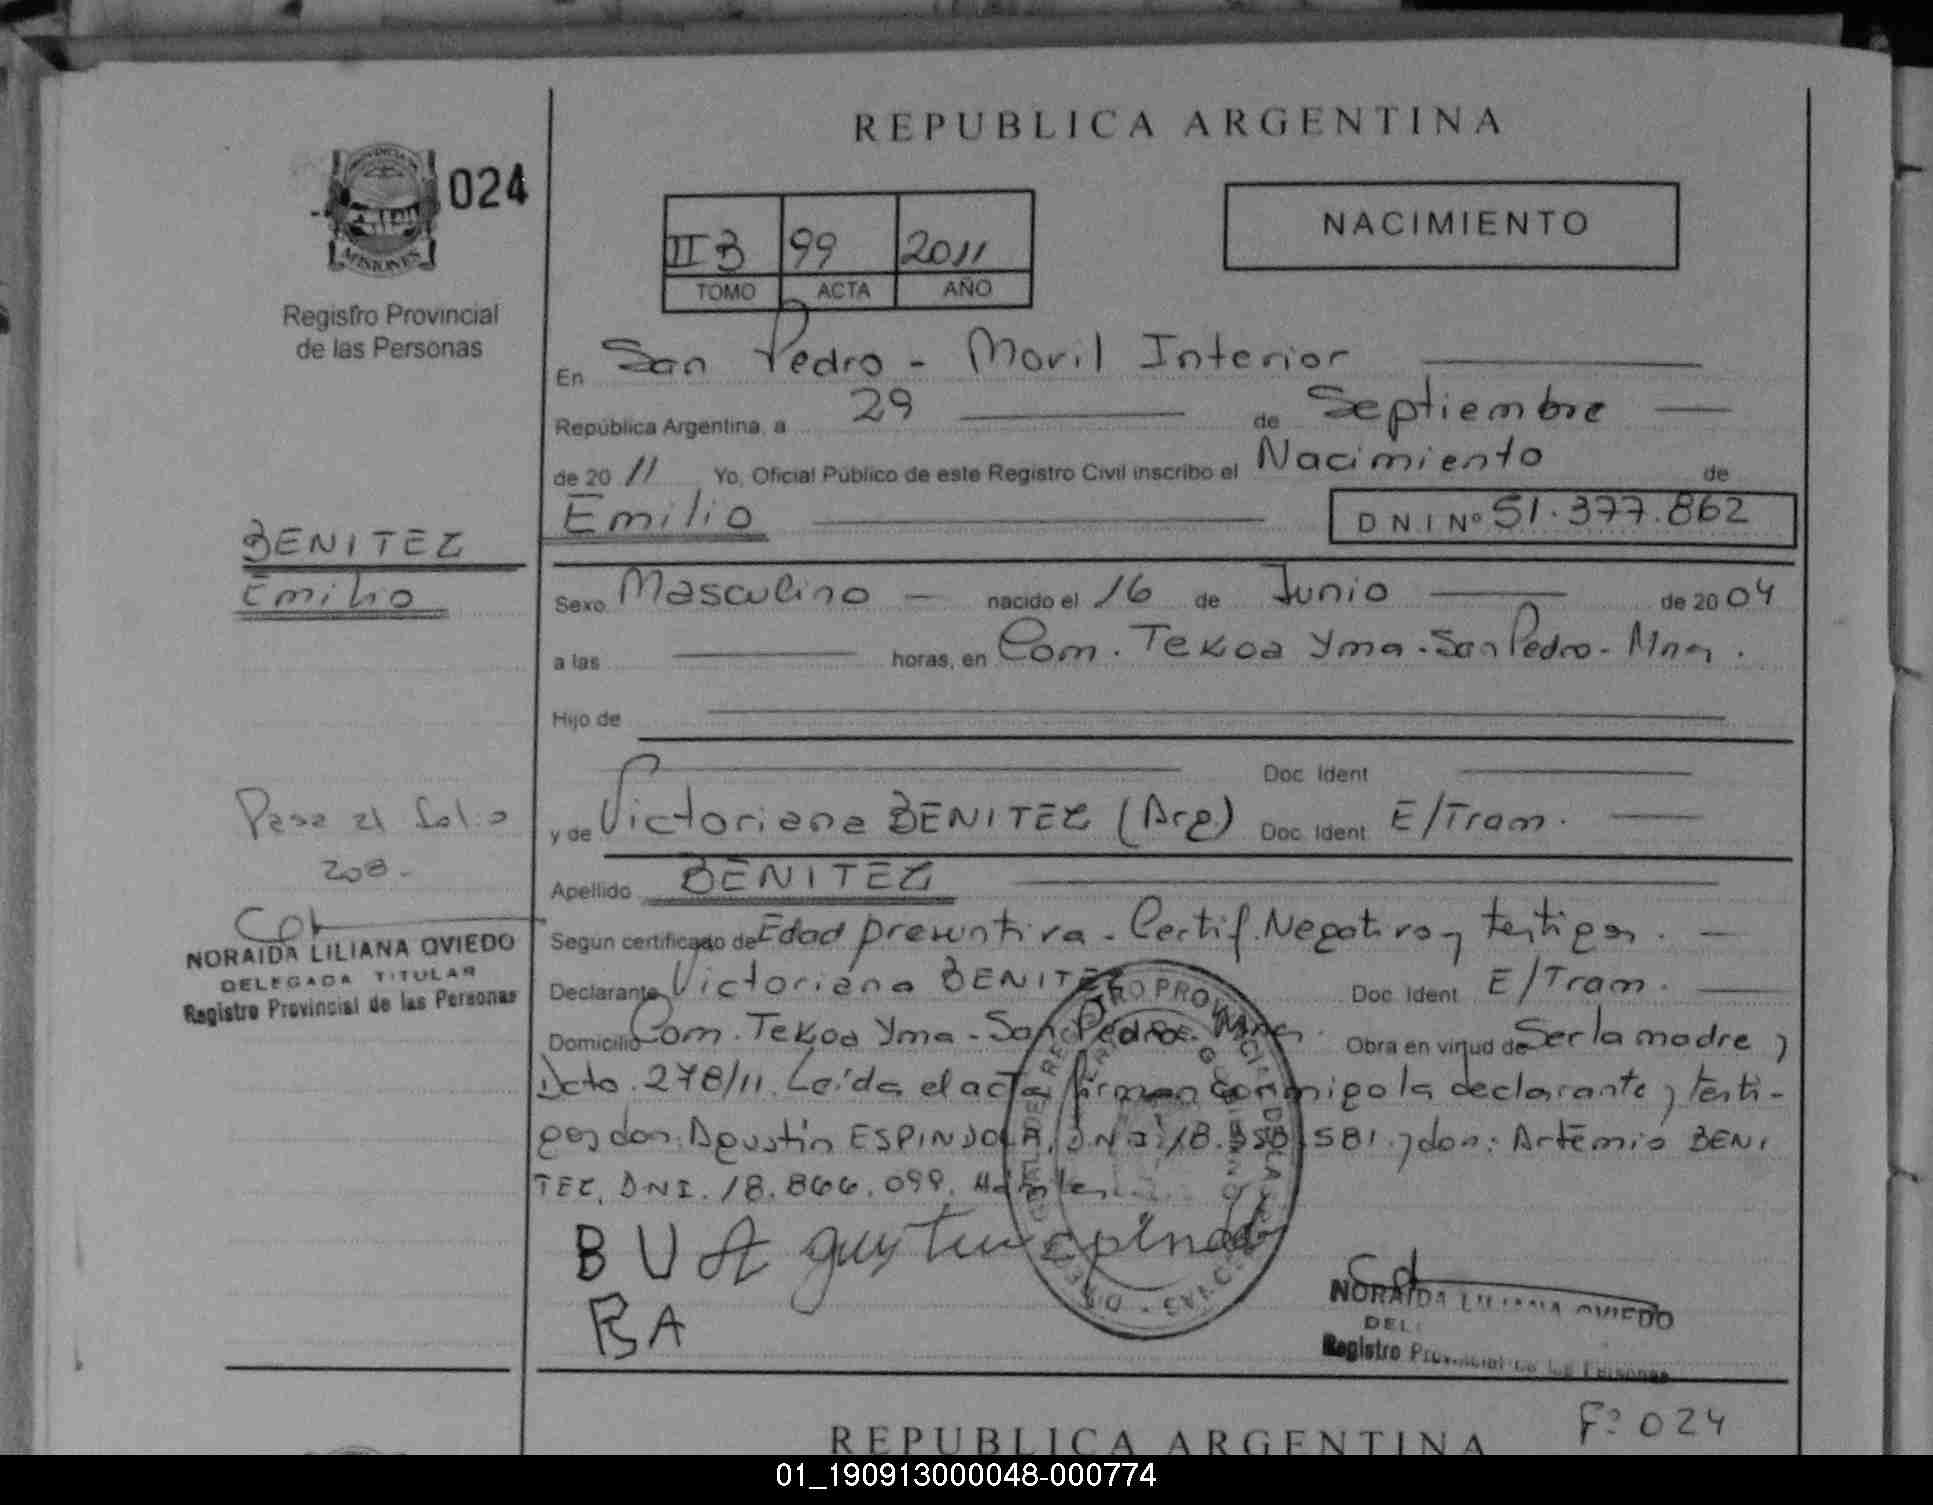 REPUBLICA ARGENTINA
PROVINCIA DE
MISIONES
024
Registro Provincial
de las Personas
II B 99 2011
TOMO ACTA AÑO
NACIMIENTO
En San Pedro - Movil Interior
República Argentina, a 29 de Septiembre
de 2011 Yo, Oficial Público de este Registro Civil inscribo el Nacimiento de
Emilio
D N I Nº 51.377.862
BENITEZ
Emilio
Sexo Masculino nacido el 16 de Junio de 2004
a las horas, en Com. Tekoa Yma - San Pedro - Mnes.
Hijo de
Doc. Ident
y de Victoriana BENITEZ (Arg) Doc. Ident E/Tram.
Apellido BENITEZ
Pasa al folio
208.
NORAIDA LILIANA OVIEDO
DELEGADA TITULAR
Registro Provincial de las Personas
Segun certificado de Edad presuntiva - Certif. Negativo y testigos.
Declarante Victoriana BENITEZ Doc. Ident E/Tram.
Domicilio Com. Tekoa Yma - San Pedro - Mnes. Obra en virtud de Ser la madre y
Dcto. 278/11. Leída el acta firman conmigo la declarante y testi-
gos don: Agustín ESPINDOLA, DNI: 18. .581. y don: Artemio BENI
TEZ, DNI. 18.866.099.
B V Agustin
B A
NORAIDA LILIANA OVIEDO
DEL
Registro Provincial de las Personas
Fº 024
REPUBLICA ARGENTINA
01_190913000048-000774